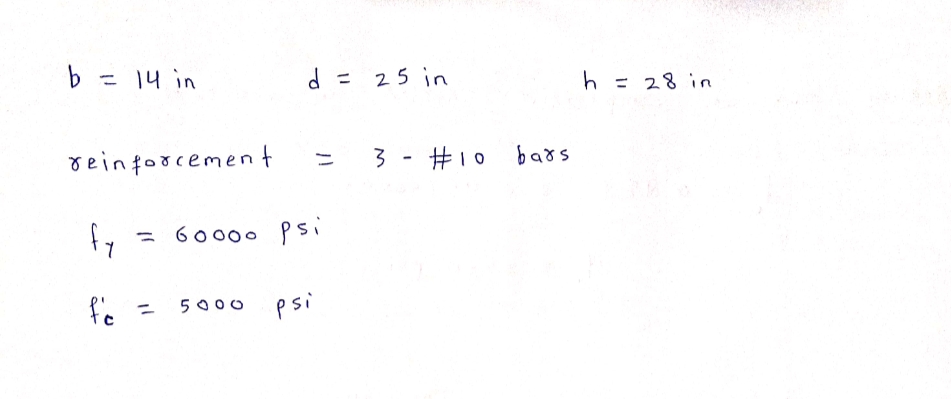 b = 14 in d = 25 in h = 28 in
reinforcement = 3 - #10 bars
fy = 60000 psi
f'c = 5000 psi